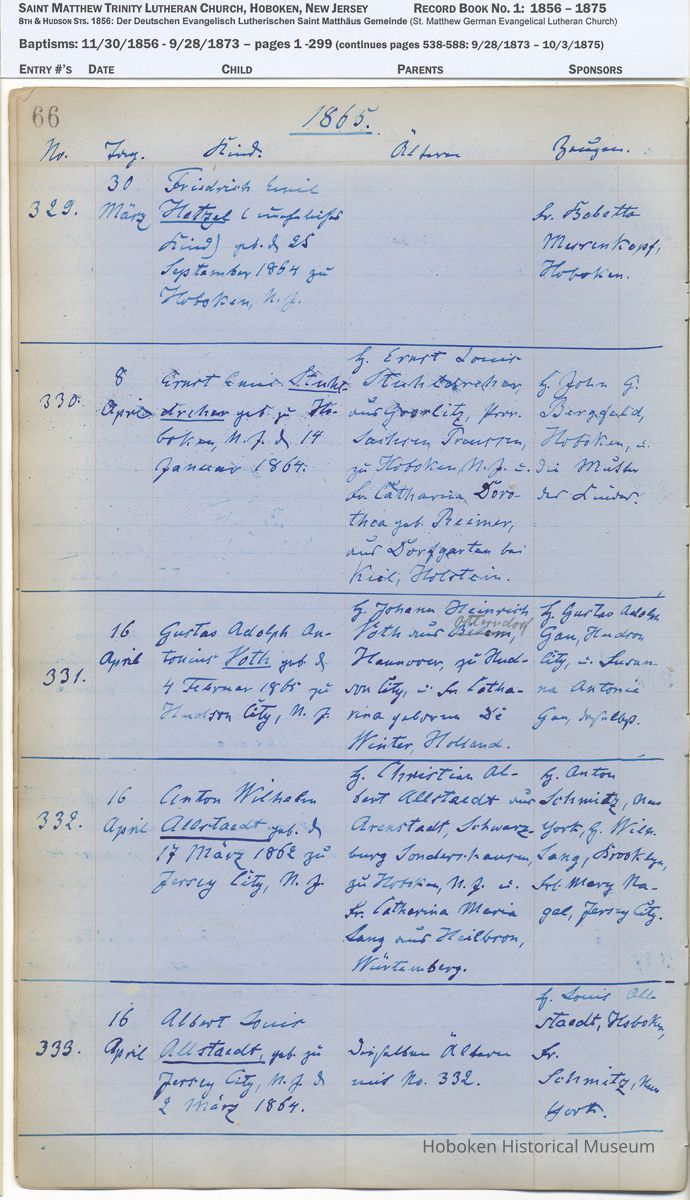 SAINT MATTHEW TRINITY LUTHERAN CHURCH, HOBOKEN, NEW JERSEY RECORD BOOK NO. 1: 1856 – 1875
8TH & HUDSON STS. 1856: Der Deutschen Evangelisch Lutherischen Saint Matthäus Gemeinde (St. Matthew German Evangelical Lutheran Church)
Baptisms: 11/30/1856 - 9/28/1873 – pages 1 -299 (continues pages 538-588: 9/28/1873 – 10/3/1875)
ENTRY #'S DATE CHILD PARENTS SPONSORS
66
1865.
No. Kind. Ältern Zeugen.
329.
30
März
Friedrich Emil
Hetzel (unehliches
Kind) geb. d. 25
September 1864 zu
Hoboken, N. J.
Fr. Babetta
Hoboken.
330.
8
April
Ernst Emil Stuhl-
dreher geb. zu Ho-
boken, N. J. d. 14
Januar 1864.
H. Ernst Louis
Stuhldreher,
aus Goerlitz, Prov.
Sachsen Preussen,
zu Hoboken, N. J. u.
Fr. Catharina Doro-
thea geb. Reimer,
aus Dorfgarten bei
Kiel, Holstein.
H. John G.
Bergfeld,
Hoboken, u.
die Mutter
des Kindes.
331.
16
April
Gustav Adolph An-
tonius Voth geb. d.
4 Februar 1865 zu
Hudson City, N. J.
H. Johann Heinrich
Otterndorf
Voth aus
Hannover, zu Hud-
son City, u. Fr. Catha-
rina geboren De
Winter, Holland.
H. Gustav Adolph
Gau, Hudson
City, u. Susan-
na Antonie
Gau, daselbst.
332.
16
April
Anton Wilhelm
Allstaedt geb. d.
17 März 1862 zu
Jersey City, N. J.
H. Christian Al-
bert Allstaedt aus
Arenstadt, Schwarz-
burg Sondershausen,
zu Hoboken, N. J. u.
Fr. Catharina Maria
Lang aus Heilbron,
Würtemberg.
H. Anton
Schmitz, New
York, H. Wilh.
Lang, Brooklyn,
Frl. Mary Na-
gel, Jersey City.
333.
16
April
Albert Louis
Allstaedt, geb. zu
Jersey City, N. J. d.
2 März 1864.
Dieselben Ältern
wie No. 332.
H. Louis All-
staedt, Hoboken,
Fr.
Schmitz, New
York.
Hoboken Historical Museum